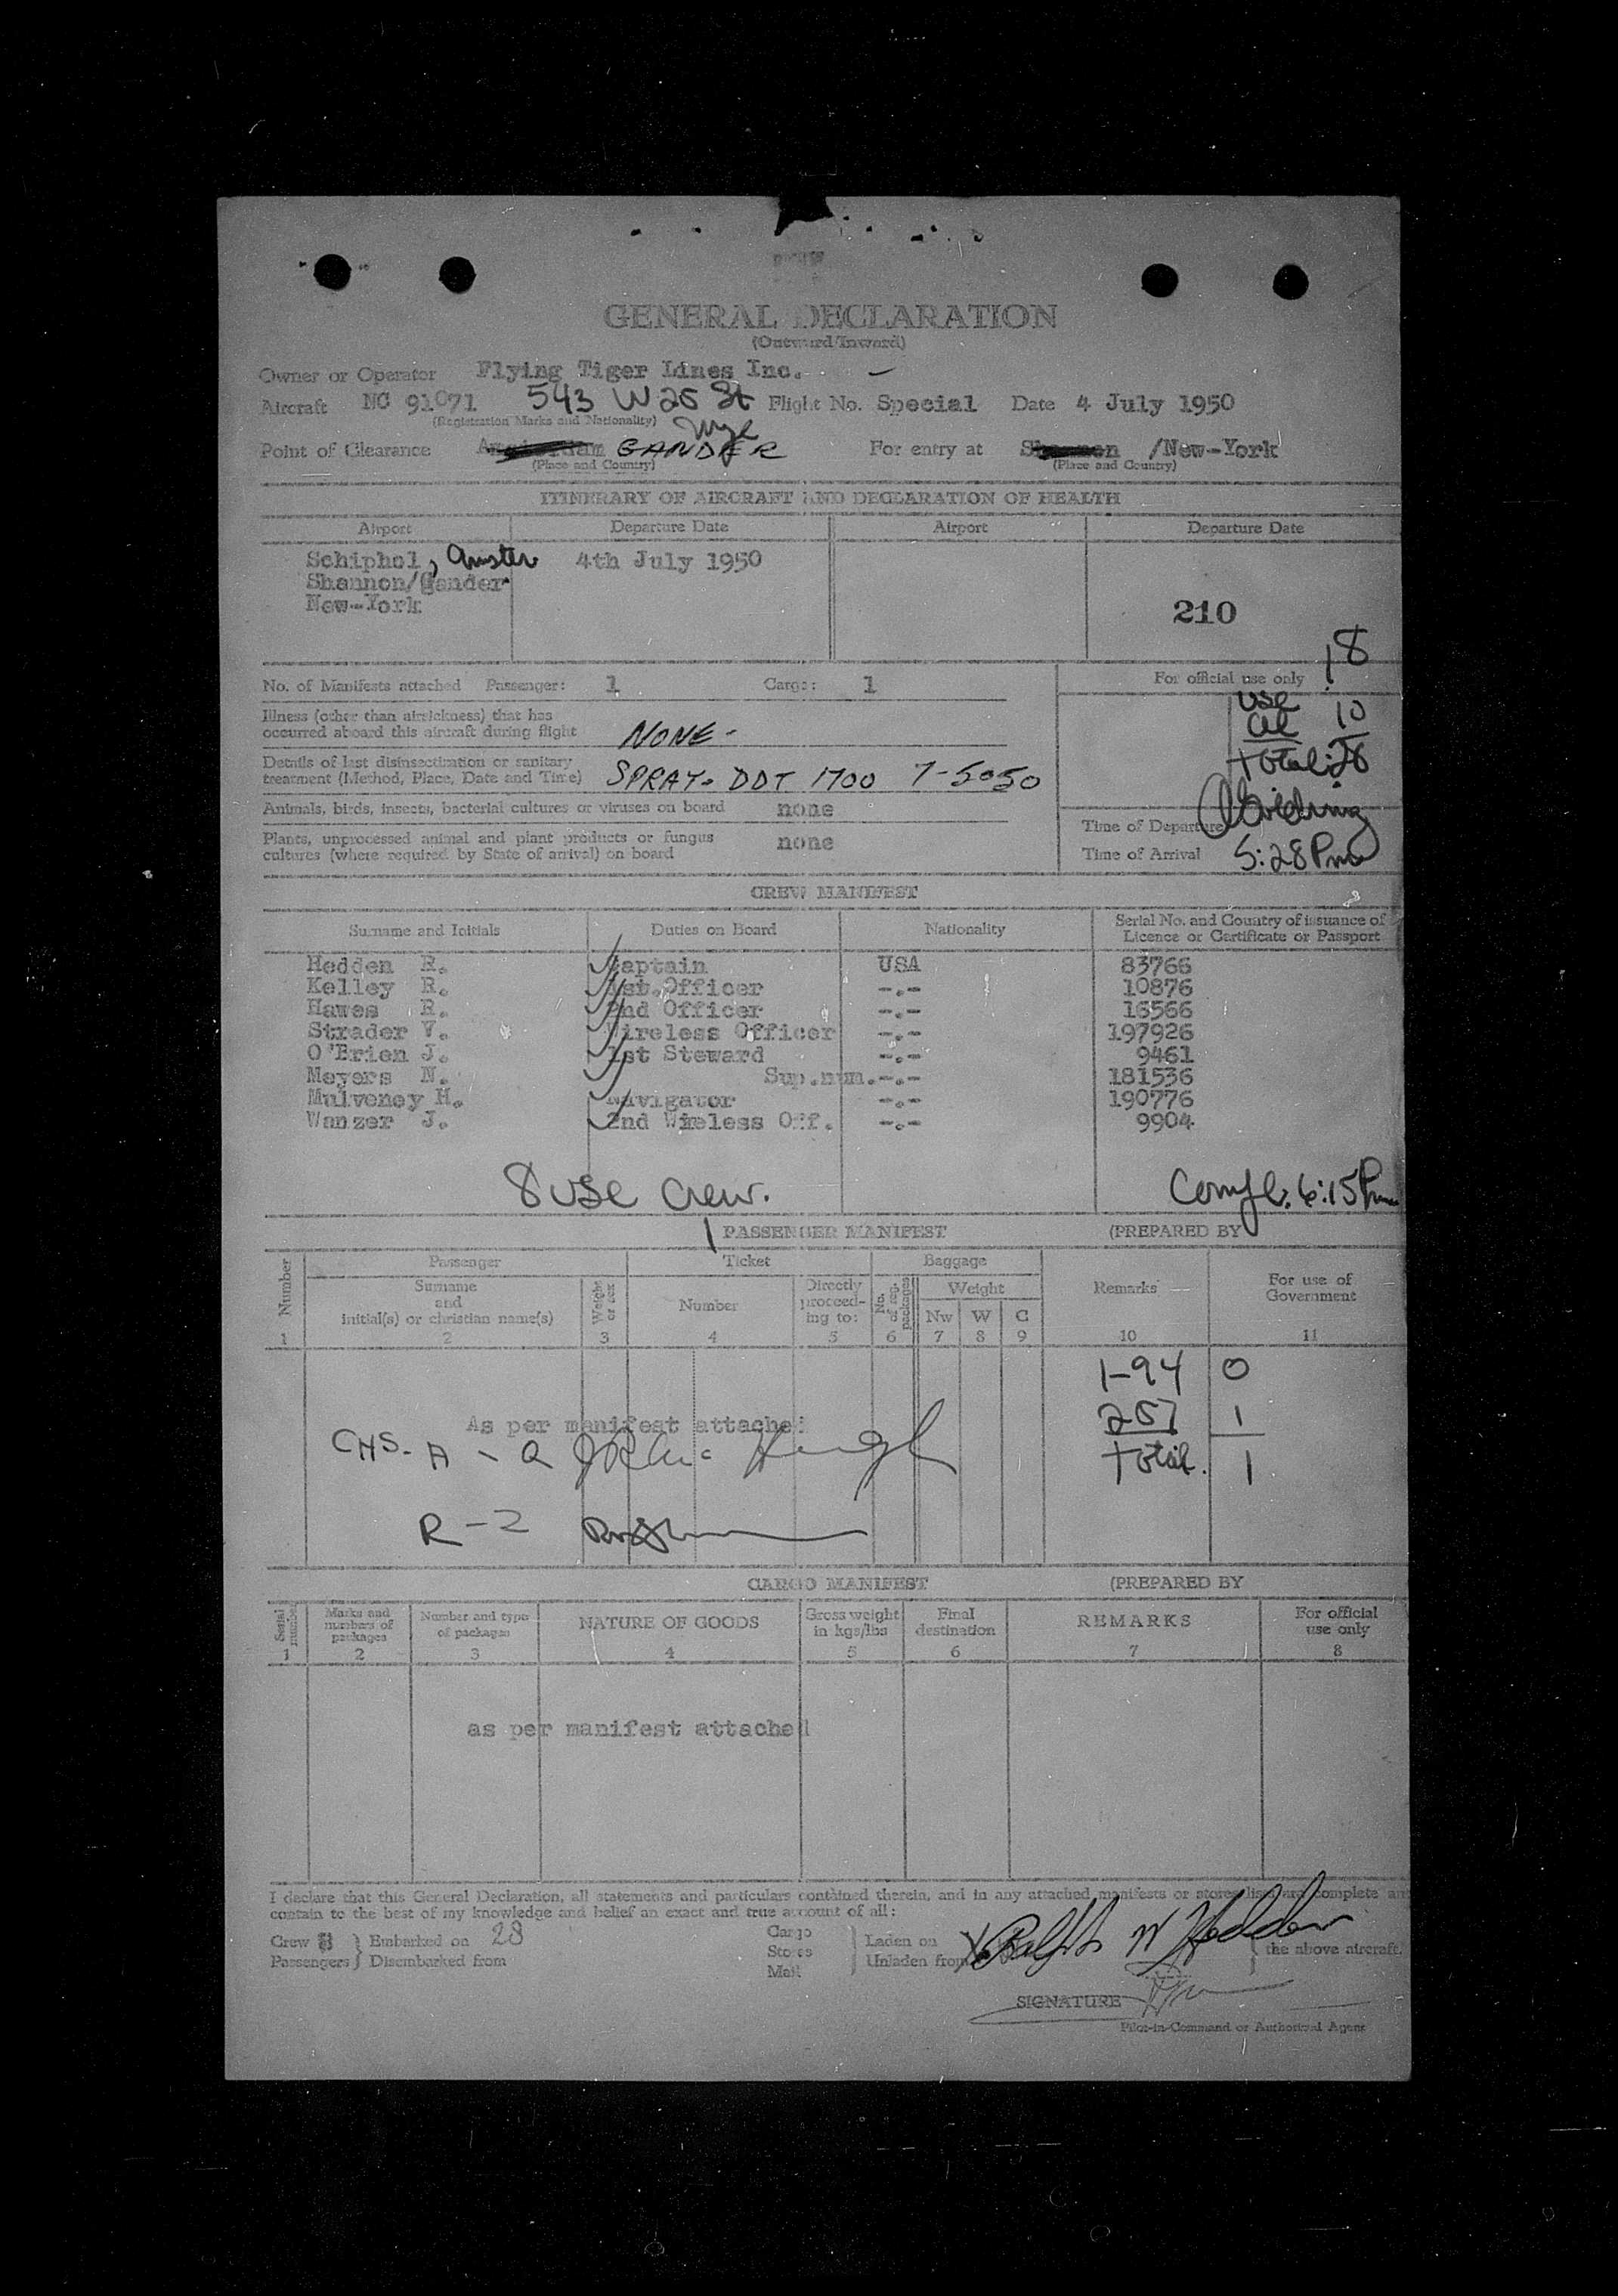 GENERAL DECLARATION
(Outward/Inward)
Owner or Operator Flying Tiger Lines Inc. -
Aircraft NC 91071 543 W 25 St Flight No. Special Date 4 July 1950
(Registration Marks and Nationality)
Point of Clearance GANDER For entry at /New-York
(Place and Country) (Place and Country)
ITINERARY OF AIRCRAFT AND DECLARATION OF HEALTH
Airport Departure Date Airport Departure Date
Schiphol, Amster 4th July 1950
Shannon/Gander
New-York
210
18
No. of Manifests attached Passenger: 1 Cargo: 1 For official use only
USC
al 10
Total: 28
Illness (other than airsickness) that has
occurred aboard this aircraft during flight NONE -
Details of last disinsectization or sanitary
treatment (Method, Place, Date and Time) SPRAY - DDT 1700 7-5-50
Animals, birds, insects, bacterial cultures or viruses on board none
Plants, unprocessed animal and plant products or fungus
cultures (where required by State of arrival) on board none
Time of Departure
Time of Arrival 5:28 Pm
CREW MANIFEST
Surname and Initials Duties on Board Nationality Serial No. and Country of issuance of
Licence or Certificate or Passport
Hedden R. Captain USA 83766
Kelley R. 1st.Officer -.- 10876
Hawes R. 2nd Officer -.- 16566
Strader V. Wireless Officer -.- 197926
O'Brien J. 1st Steward -.- 9461
Meyers N. Sup.num. -.- 181536
Mulveney H. Navigator -.- 190776
Wanzer J. 2nd Wireless Off. -.- 9904
8 USC Crew. Compl. 6:15 Pm
1 PASSENGER MANIFEST (PREPARED BY
Number Passenger Ticket Baggage Remarks For use of
Government
Surname
and
initial(s) or christian name(s) Weight
or sex Number Directly
proceed-
ing to: No.
of reg.
packages Weight
Nw W C
1 2 3 4 5 6 7 8 9 10 11
1-94 0
257 1
Total. 1
As per manifest attached
R-2
CARGO MANIFEST (PREPARED BY
Serial
number Marks and
numbers of
packages Number and type
of packages NATURE OF GOODS Gross weight
in kgs/lbs Final
destination REMARKS For official
use only
1 2 3 4 5 6 7 8
as per manifest attached
I declare that this General Declaration, all statements and particulars contained therein, and in any attached manifests or stores lists are complete and
contain to the best of my knowledge and belief an exact and true account of all:
Crew 8 Embarked on 28 Cargo Laden on
Passengers Disembarked from Stores Unladen from the above aircraft.
Mail
Ralph W Hedden
SIGNATURE
Pilot-in-Command or Authorized Agent